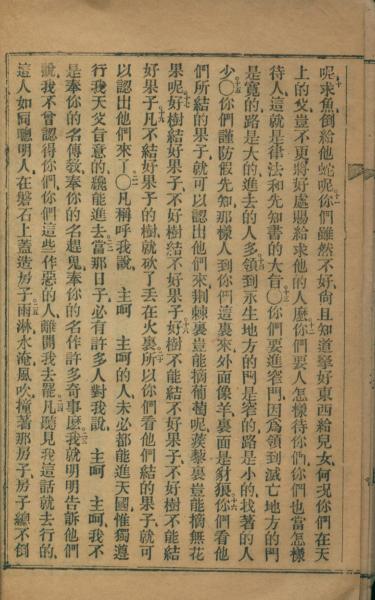 呢求魚、倒給他蛇呢你們雖然不好、尙且知道拏好東西給兒女、何况你們在天
上的父、豈不更將好處賜給求他的人麽你們要人怎樣待你們、你們也當怎樣
待人、這就是律法和先知書的大旨〇你們要進窄門、因爲領到滅亡地方的門
是寬的、路是大的、進去的人多、領到永生地方的門是窄的、路是小的、找著的人
少〇你們謹防假先知、那樣人到你們這裏來、外面像羊、裏面是豺狼、你們看他
們所結的果子、就可以認出他們來、荆棘裏豈能摘葡萄呢、蒺藜裏豈能摘無花
果呢、好樹結好果子、不好樹結不好果子、好樹不能結不好果子、不好樹不能結
好果子、凡不結好果子的樹、就砍了丟在火裏、所以你們看他們結的果子、就可
以認出他們來〇凡稱呼我說、主呵、主呵的人、未必都能進天國、惟獨遵
行我天父旨意的、纔能進去、當那日子、必有許多人對我說、主呵、主呵、我不
是奉你的名傳敎、奉你的名趕鬼、奉你的名作許多奇事麽、我就明明告訴他們
說、我不曾認得你們、你們這些作惡的人、離開我去罷、凡聽見我這話就去行的、
這人如同聰明人、在磐石上蓋造房子、雨淋水淹風吹、撞著那房子、房子總不倒